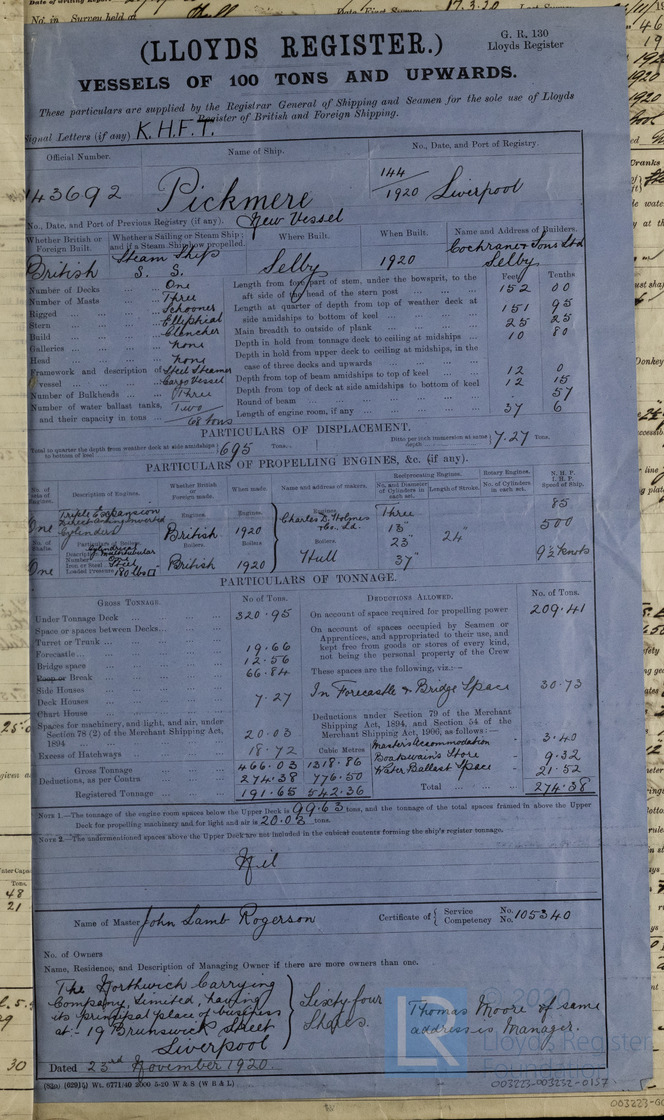 (LLOYDS REGISTER.)
G. R. 130
Lloyds Register
VESSELS OF 100 TONS AND UPWARDS.
These particulars are supplied by the Registrar General of Shipping and Seamen for the sole use of Lloyds
Register of British and Foreign Shipping.
Signal Letters (if any) K.H.F.T.
Official Number. Name of Ship. No., Date, and Port of Registry.
143692 Pickmere 144/1920 Liverpool
No., Date, and Port of Previous Registry (if any). New Vessel
Whether British or Foreign Built. Whether a Sailing or Steam Ship; and if a Steam Ship how propelled. Where Built. When Built. Name and Address of Builders.
British Steam Ship S. S. Selby 1920 Cochrane & Sons Ltd Selby
Number of Decks ... One
Number of Masts ... Three
Rigged ... Schooner
Stern ... Elliptical
Build ... Clencher
Galleries ... None
Head ... None
Framework and description of vessel ... Steel Steamer Cargo Vessel
Number of Bulkheads ... Three
Number of water ballast tanks, and their capacity in tons ... Two 68 tons
Feet Tenths
Length from fore part of stem, under the bowsprit, to the aft side of the head of the stern post 152 00
Length at quarter of depth from top of weather deck at side amidships to bottom of keel 151 95
Main breadth to outside of plank 25 25
Depth in hold from tonnage deck to ceiling at midships 10 80
Depth in hold from upper deck to ceiling at midships, in the case of three decks and upwards
Depth from top of beam amidships to top of keel 12 0
Depth from top of deck at side amidships to bottom of keel 12 15
Round of beam 57
Length of engine room, if any 37 6
PARTICULARS OF DISPLACEMENT.
Total to quarter the depth from weather deck at side amidships to bottom of keel 695 Tons. Ditto per inch immersion at same depth 7.27 Tons.
PARTICULARS OF PROPELLING ENGINES, &c. (if any).
No. of sets of Engines. Description of Engines. Whether British or Foreign made. When made. Name and address of makers. Reciprocating Engines. No. and Diameter of Cylinders in each set. Length of Stroke. Rotary Engines. No. of Cylinders in each set. N.H.P. I.H.P. Speed of Ship.
One Triple Expansion Direct Acting Inverted Cylinders Engines. British Engines. 1920 Engines. Charles D. Holmes & Co., Ld. Three 13" 23" 37" 24" 85 500 9½ knots
No. of Shafts. Particulars of Boilers. Description Cylindrical Multitubular
Number One
Iron or Steel Steel
Loaded Pressure 180 lbs □"
One Boilers. British Boilers 1920 Boilers. Hull
PARTICULARS OF TONNAGE.
GROSS TONNAGE. No of Tons. DEDUCTIONS ALLOWED. No. of Tons.
Under Tonnage Deck 320.95
Space or spaces between Decks
Turret or Trunk
Forecastle 19.66
Bridge space 12.56
Poop or Break 66.84
Side Houses
Deck Houses 7.27
Chart House
Spaces for machinery, and light, and air, under Section 78 (2) of the Merchant Shipping Act, 1894 20.03
Excess of Hatchways 18.72
Cubic Metres
Gross Tonnage 466.03 1318.86
Deductions, as per Contra 274.38 776.50
Registered Tonnage 191.65 542.36
On account of space required for propelling power 209.41
On account of spaces occupied by Seamen or Apprentices, and appropriated to their use, and kept free from goods or stores of every kind, not being the personal property of the Crew
These spaces are the following, viz:—
In Forecastle & Bridge Space 30.73
Deductions under Section 79 of the Merchant Shipping Act, 1894, and Section 54 of the Merchant Shipping Act, 1906, as follows:—
Master's Accommodation 3.40
Boatswain's Store 9.32
Water Ballast Space 21.52
Total 274.38
NOTE 1.—The tonnage of the engine room spaces below the Upper Deck is 99.63 tons, and the tonnage of the total spaces framed in above the Upper
Deck for propelling machinery and for light and air is 20.03 tons.
NOTE 2.—The undermentioned spaces above the Upper Deck are not included in the cubical contents forming the ship's register tonnage.
Nil
Name of Master John Lamb Rogerson Certificate of { Service No. Competency No. 105340
No. of Owners
Name, Residence, and Description of Managing Owner if there are more owners than one.
The Northwich Carrying
Company, Limited, having
its principal place of business
at:- 19 Brunswick Street
Liverpool
Sixty four
Shares.
Thomas Moore of same
address is Manager.
Dated 23rd November 1920.
© 2020
Lloyd's Register
Foundation
003223-003232-0157